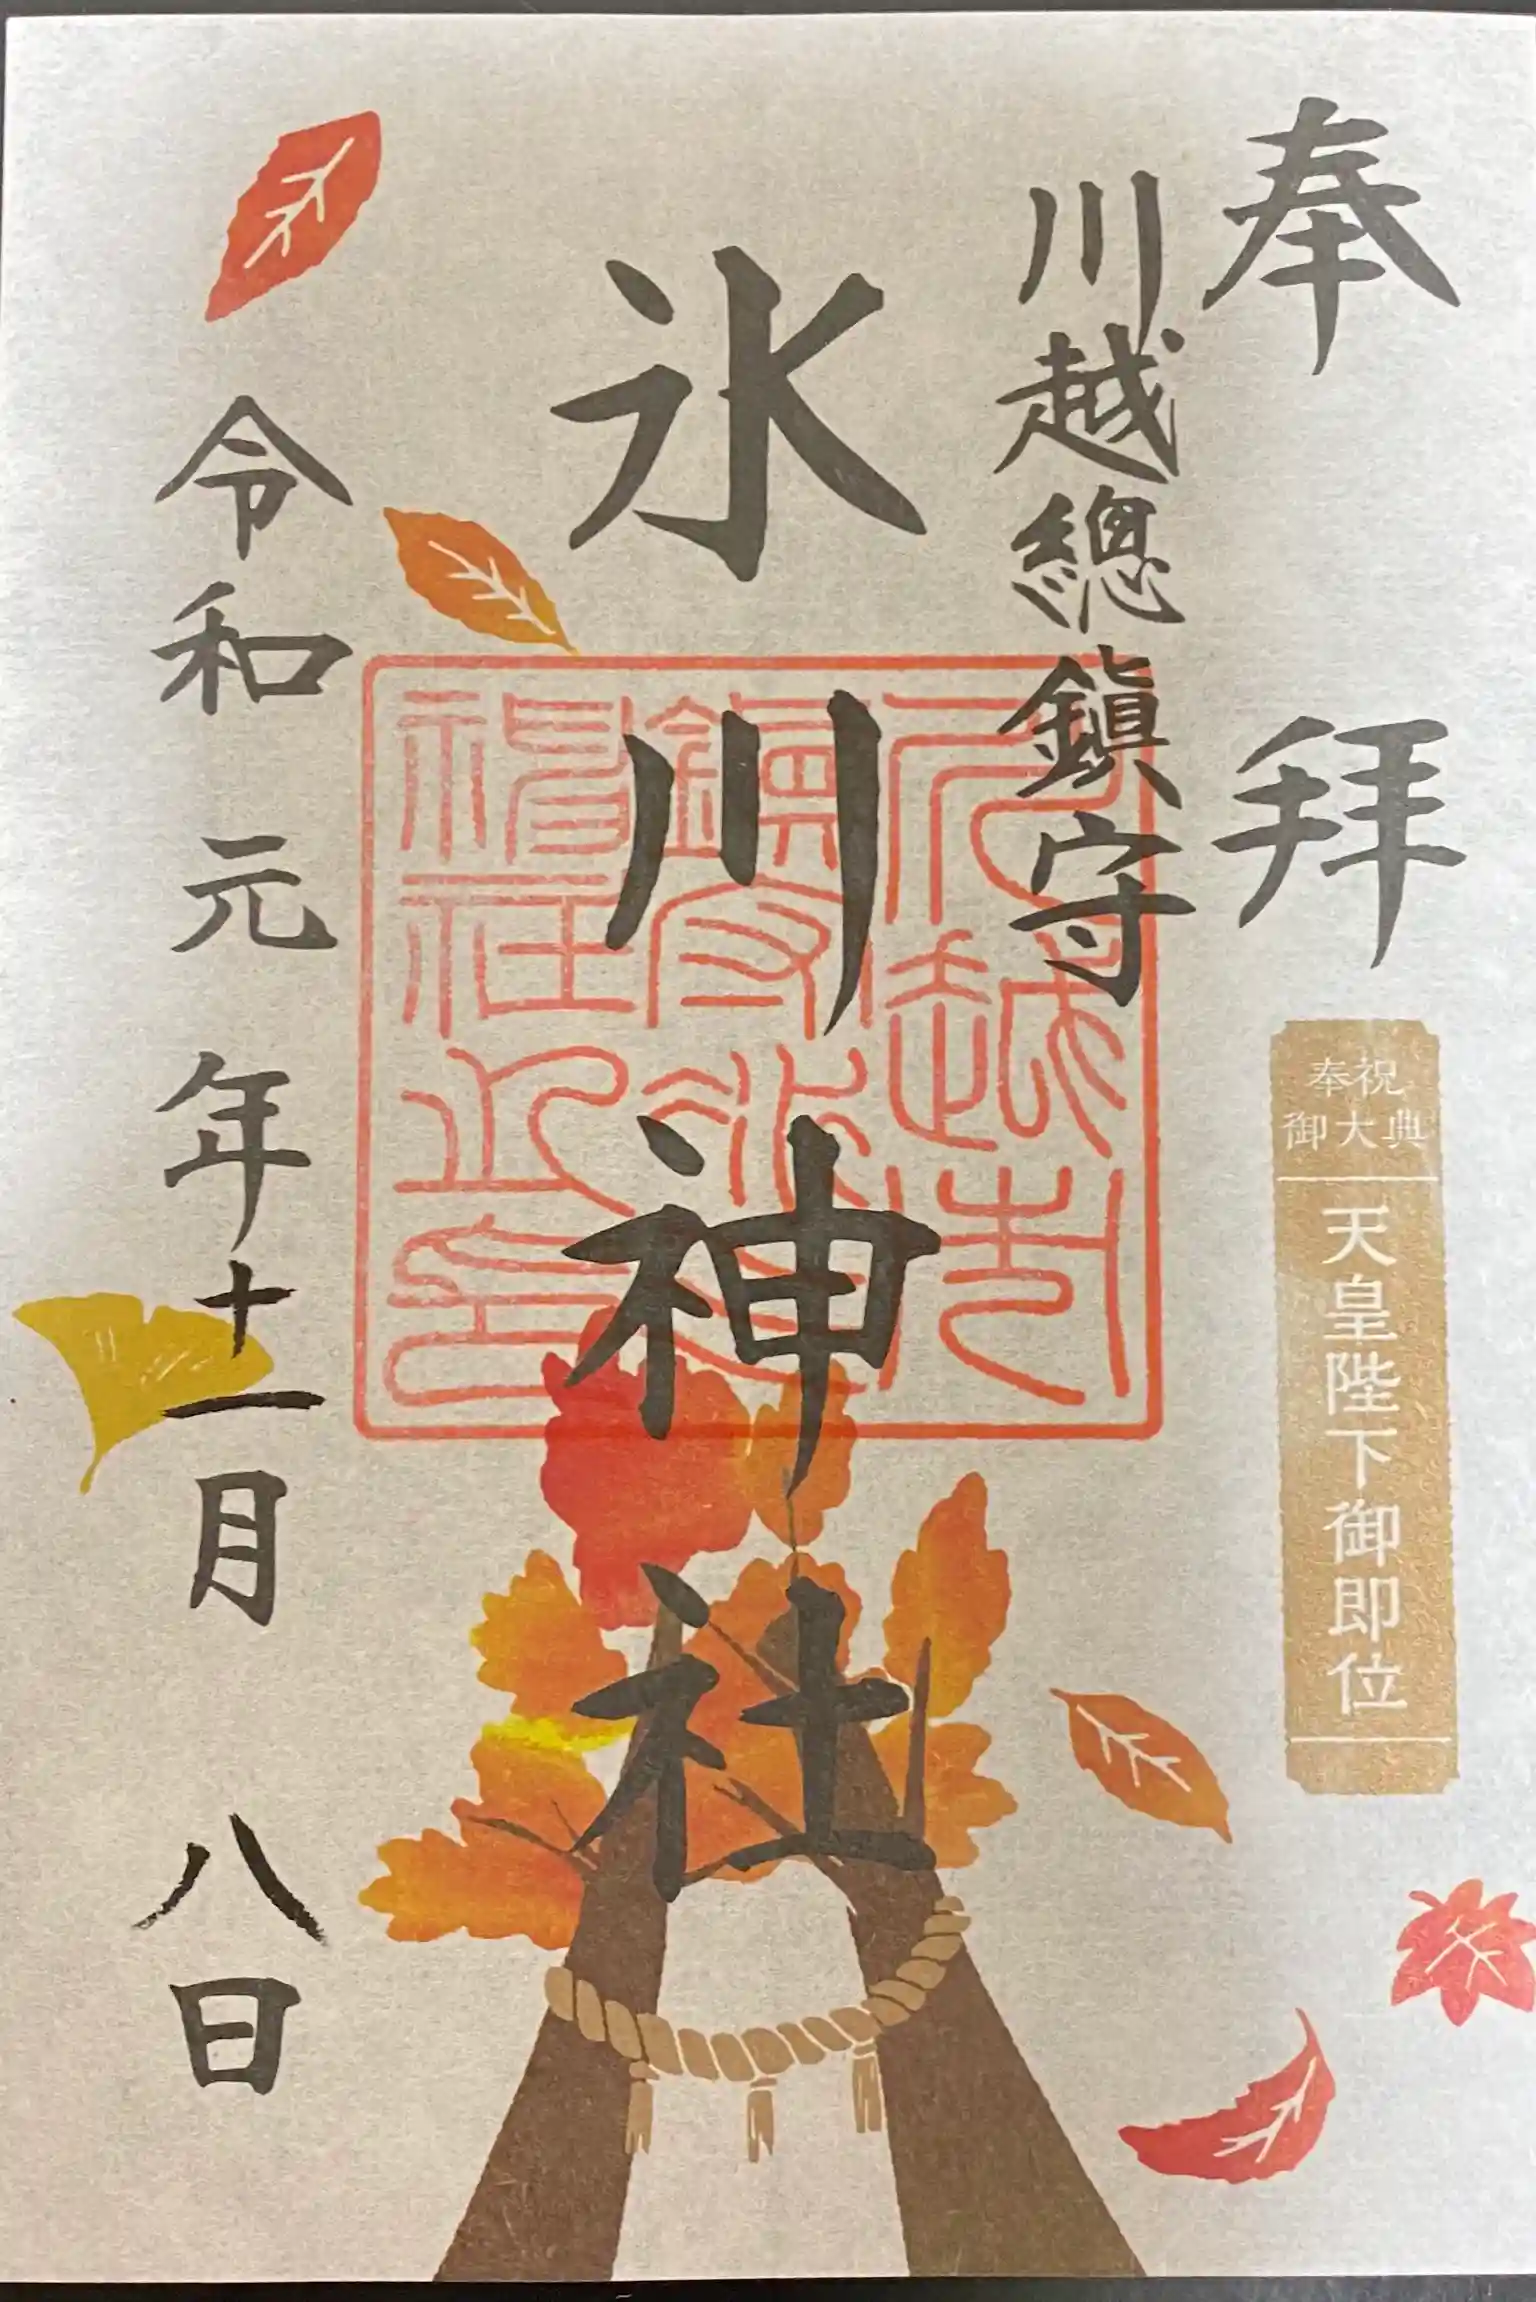 奉拝
奉祝
御大典
天皇陛下御即位
川越總鎮守
氷川神社
令和元年十一月八日